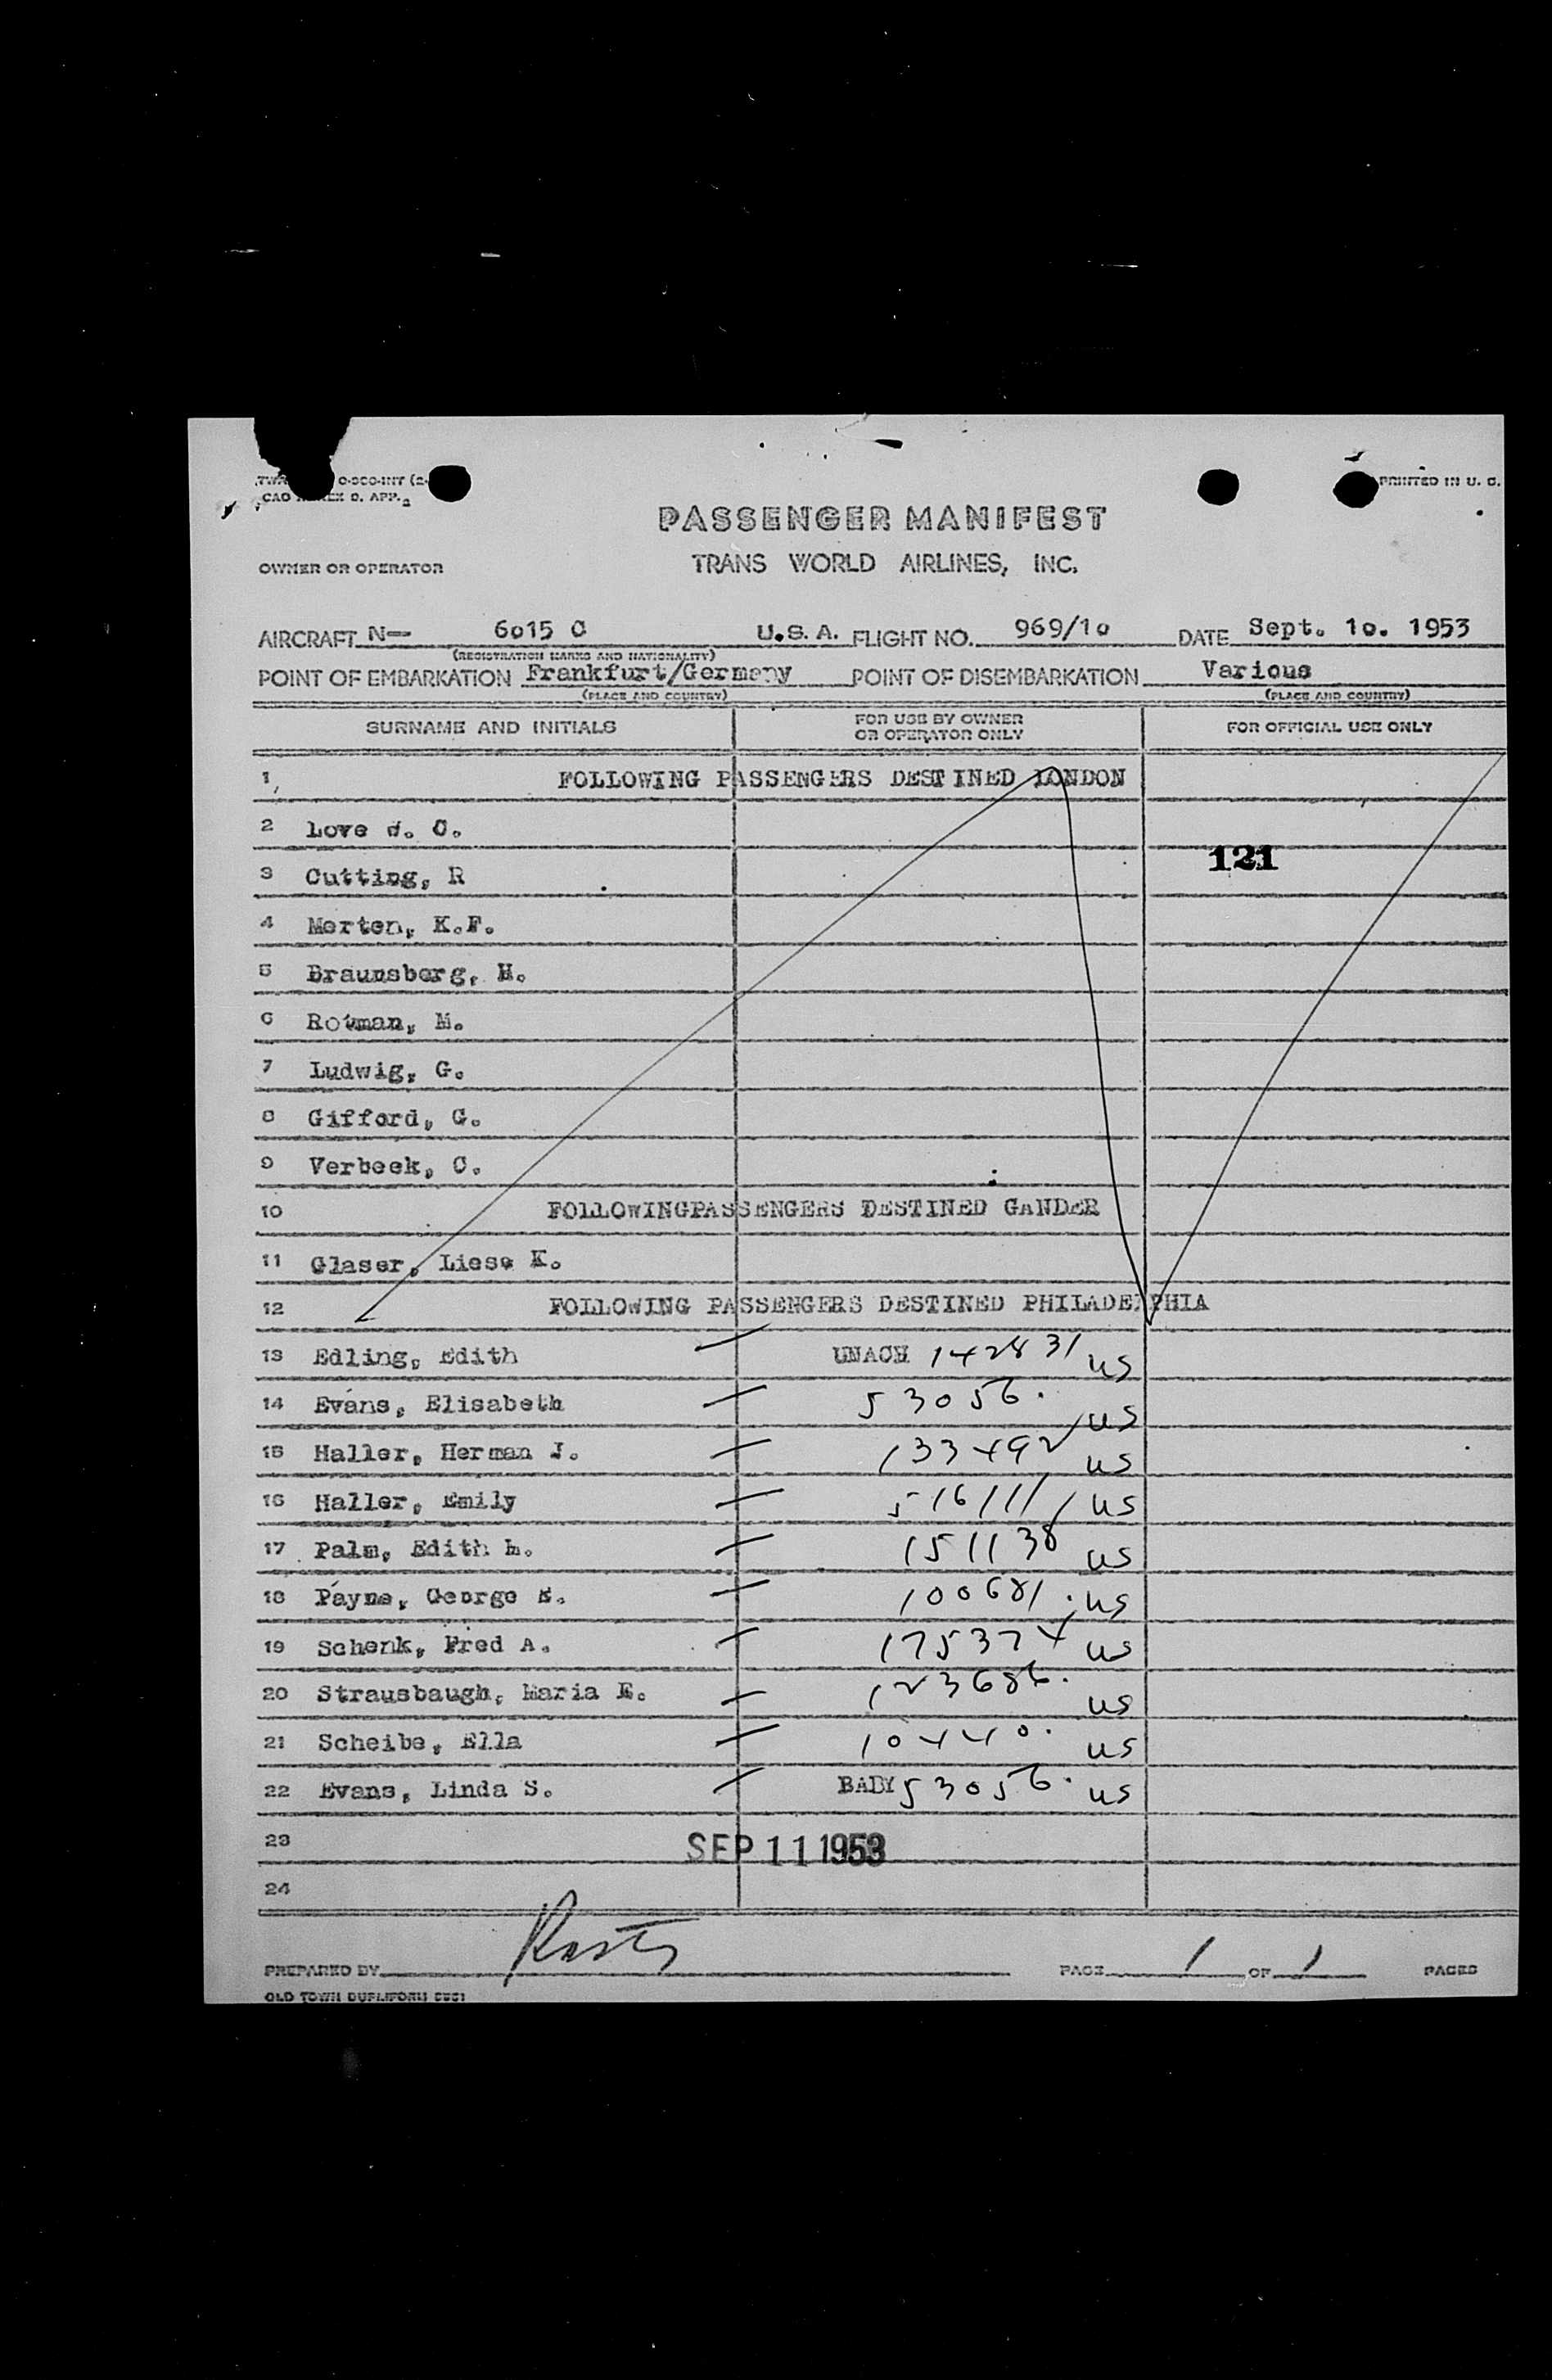 PRINTED IN U. S.
PASSENGER MANIFEST
OWNER OR OPERATOR TRANS WORLD AIRLINES, INC.
AIRCRAFT N— 6015 C U.S.A. FLIGHT NO. 969/10 DATE Sept. 10. 1953
(REGISTRATION MARKS AND NATIONALITY)
POINT OF EMBARKATION Frankfurt/Germany POINT OF DISEMBARKATION Various
(PLACE AND COUNTRY) (PLACE AND COUNTRY)
SURNAME AND INITIALS FOR USE BY OWNER OR OPERATOR ONLY FOR OFFICIAL USE ONLY
1 FOLLOWING PASSENGERS DESTINED LONDON
2 Love C.
121
3 Cutting, R
4 Merten, K.F.
5 Braunsberg, H.
6 Rotman, M.
7 Ludwig, G.
8 Gifford, G.
9 Verbeek, C.
10 FOLLOWINGPASSENGERS DESTINED GANDER
11 Glaser, Liese K.
12 FOLLOWING PASSENGERS DESTINED PHILADELPHIA
13 Edling, Edith — UNACH 142831 US
14 Evans, Elisabeth — 53056. US
15 Haller, Herman J. — 133492 US
16 Haller, Emily — 516111 US
17 Palm, Edith L. — 151138 US
18 Payne, George E. — 100681. US
19 Schenk, Fred A. — 175374 US
20 Strausbaugh, Maria E. — 123686. US
21 Scheibe, Ella — 10440. US
22 Evans, Linda S. — BABY 53056. US
23 SEP 11 1953
24
PREPARED BY PAGE 1 OF 1 PAGES
OLD TOWN DUPLIFORM